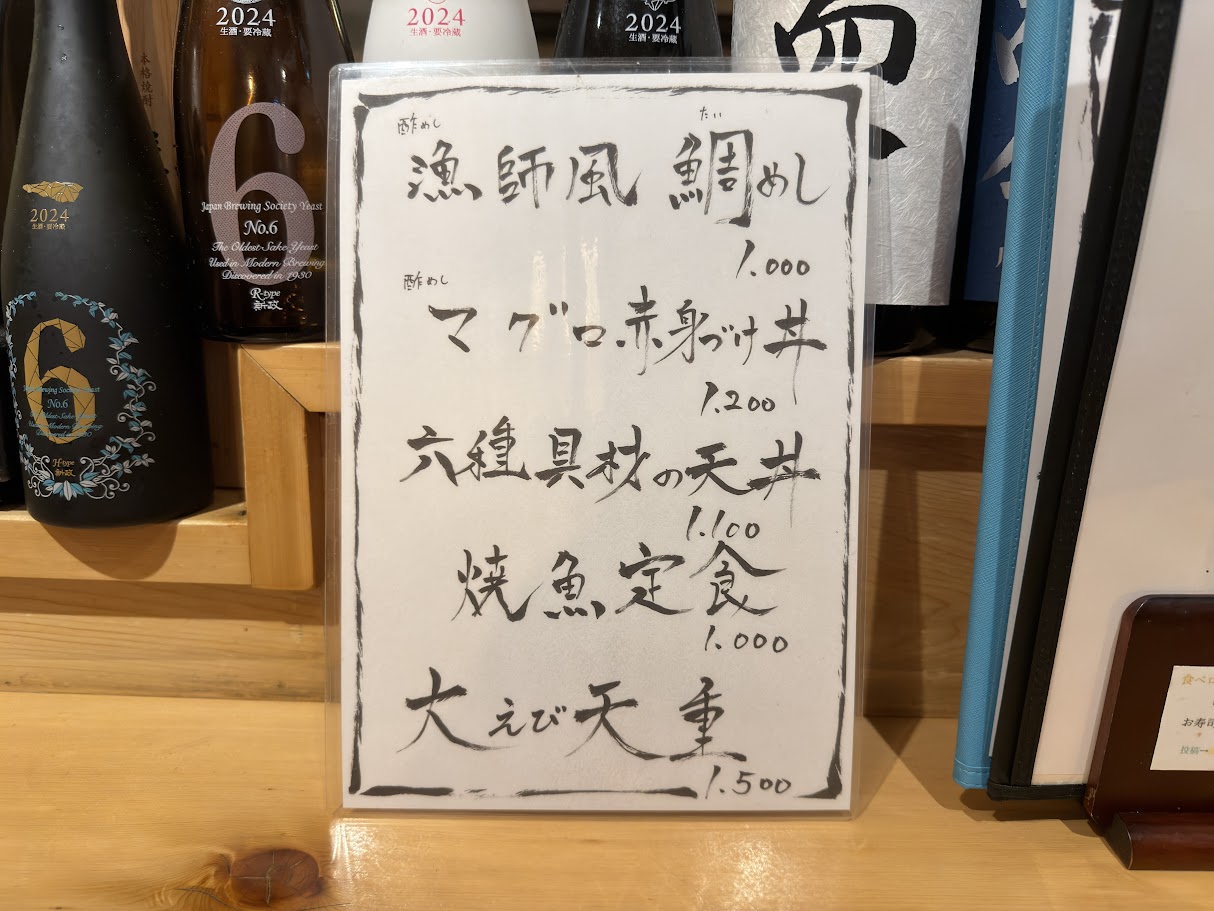 2024
生酒・要冷蔵
2024
生酒・要冷蔵
2024
生酒・要冷蔵
本格焼酎
6
Japan Brewing Society Yeast
No.6
The Oldest Sake Yeast
Used in Modern Brewing
Discovered in 1930
R-type
新政
2024
生酒・要冷蔵
6
Japan Brewing Society Yeast
No.6
The Oldest Sake Yeast
H-type
新政
酢めし
たい
漁師風 鯛めし
1.000
酢めし
マグロ赤身づけ丼
1.200
六種具材の天丼
1.100
焼魚定食
1.000
大えび天重
1.500
食べロ
お寿司
投稿→